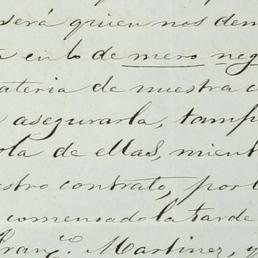 será quien nos dem
en lo de mero neg
ateria de nuestra c
asegurarla, tamp
ola de ellas, mient
estro contrato, por l
comensado la tarde
Franc.º Martinez, y